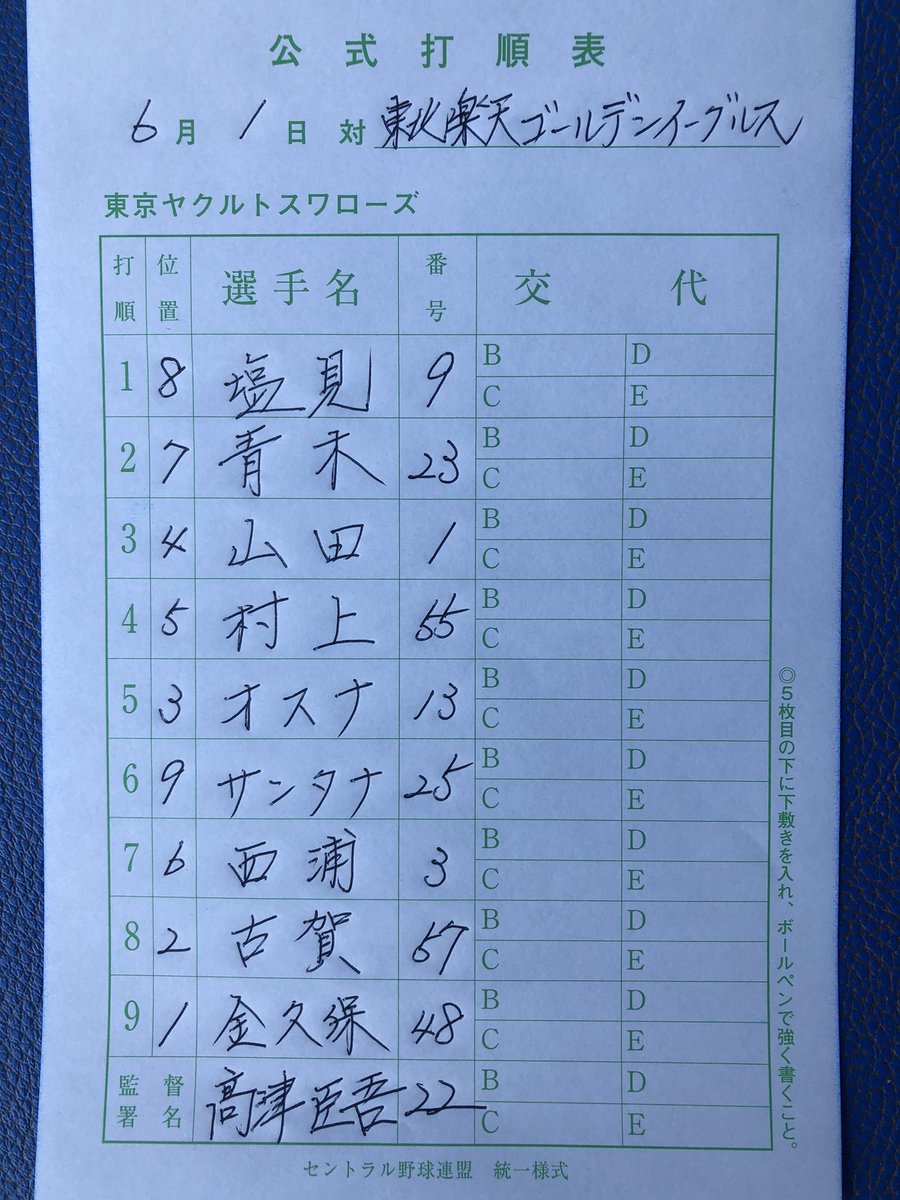 公式打順表
6月1日対東北楽天ゴールデンイーグルス
東京ヤクルトスワローズ
打順 位置 選手名 番号 交代
1 8 塩見 9 B D
C E
2 7 青木 23 B D
C E
3 4 山田 1 B D
C E
4 5 村上 55 B D
C E
5 3 オスナ 13 B D
C E
6 9 サンタナ 25 B D
C E
7 6 西浦 3 B D
C E
8 2 古賀 57 B D
C E
9 1 金久保 48 B D
C E
監督署名 高津臣吾 22 B D
C E
◎5枚目の下に下敷きを入れ、ボールペンで強く書くこと。
セントラル野球連盟 統一様式